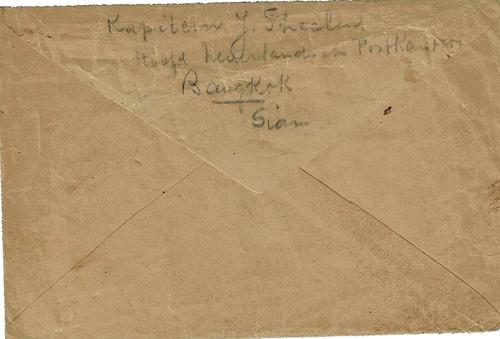 Kapitein J.
Hoofd Nederlandsch Postkantoor
Bangkok
Siam